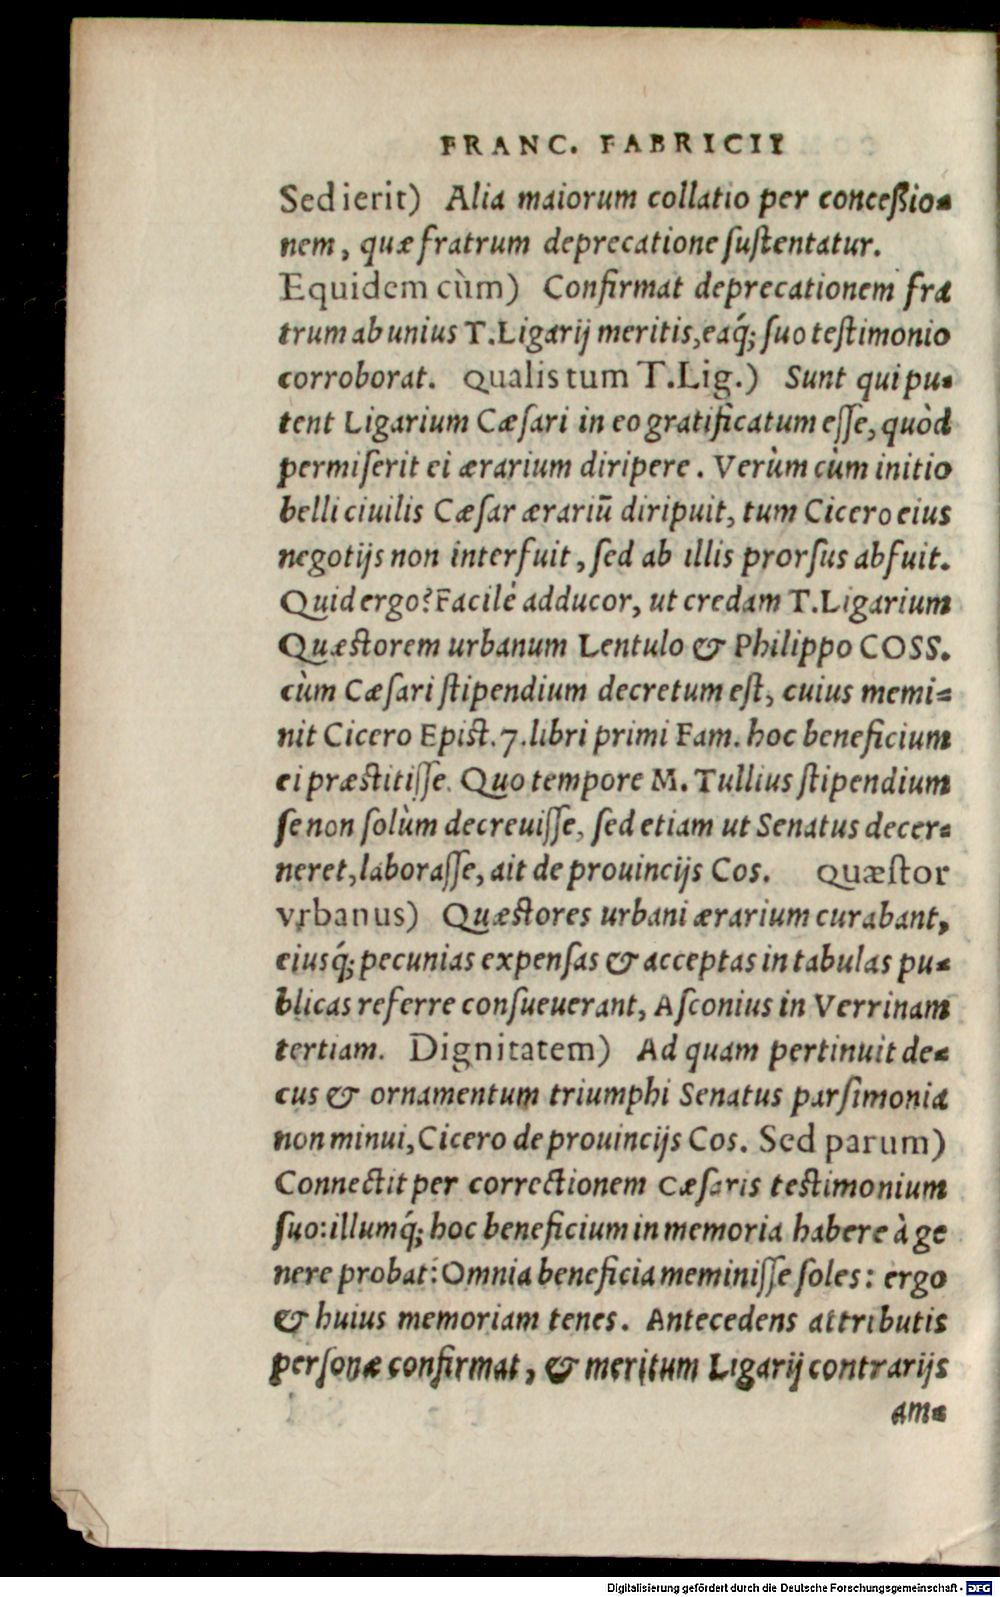 FRANC. FABRICII
Sed ierit) Alia maiorum collatio per conceßio-
nem, quæ fratrum deprecatione ſuſtentatur.
Equidem cùm) Confirmat deprecationem fra
trum ab unius T. Ligarij meritis, eaq́; ſuo teſtimonio
corroborat. Qualis tum T. Lig.) Sunt qui pu-
tent Ligarium Cæſari in eo gratificatum eſſe, quòd
permiſerit ei ærarium diripere. Verùm cùm initio
belli ciuilis Cæſar ærariũ diripuit, tum Cicero eius
negotijs non interfuit, ſed ab illis prorſus abfuit.
Quid ergo? Facilè adducor, ut credam T. Ligarium
Quæſtorem urbanum Lentulo & Philippo COSS.
cùm Cæſari ſtipendium decretum eſt, cuius memi-
nit Cicero Epiſt. 7. libri primi Fam. hoc beneficium
ei præſtitiſſe. Quo tempore M. Tullius ſtipendium
ſe non ſolùm decreuiſſe, ſed etiam ut Senatus decer-
neret, laboraſſe, ait de prouincijs Cos. Quæſtor
vrbanus) Quæſtores urbani ærarium curabant,
eiusq́; pecunias expenſas & acceptas in tabulas pu-
blicas referre conſueuerant, Aſconius in Verrinam
tertiam. Dignitatem) Ad quam pertinuit de-
cus & ornamentum triumphi Senatus parſimonia
non minui, Cicero de prouincijs Cos. Sed parum)
Connectit per correctionem Cæſaris teſtimonium
ſuo: illumq́; hoc beneficium in memoria habere à ge
nere probat: Omnia beneficia meminiſſe ſoles: ergo
& huius memoriam tenes. Antecedens attributis
perſonæ confirmat, & meritum Ligarij contrarijs
am-
Digitalisierung gefördert durch die Deutsche Forschungsgemeinschaft - DFG